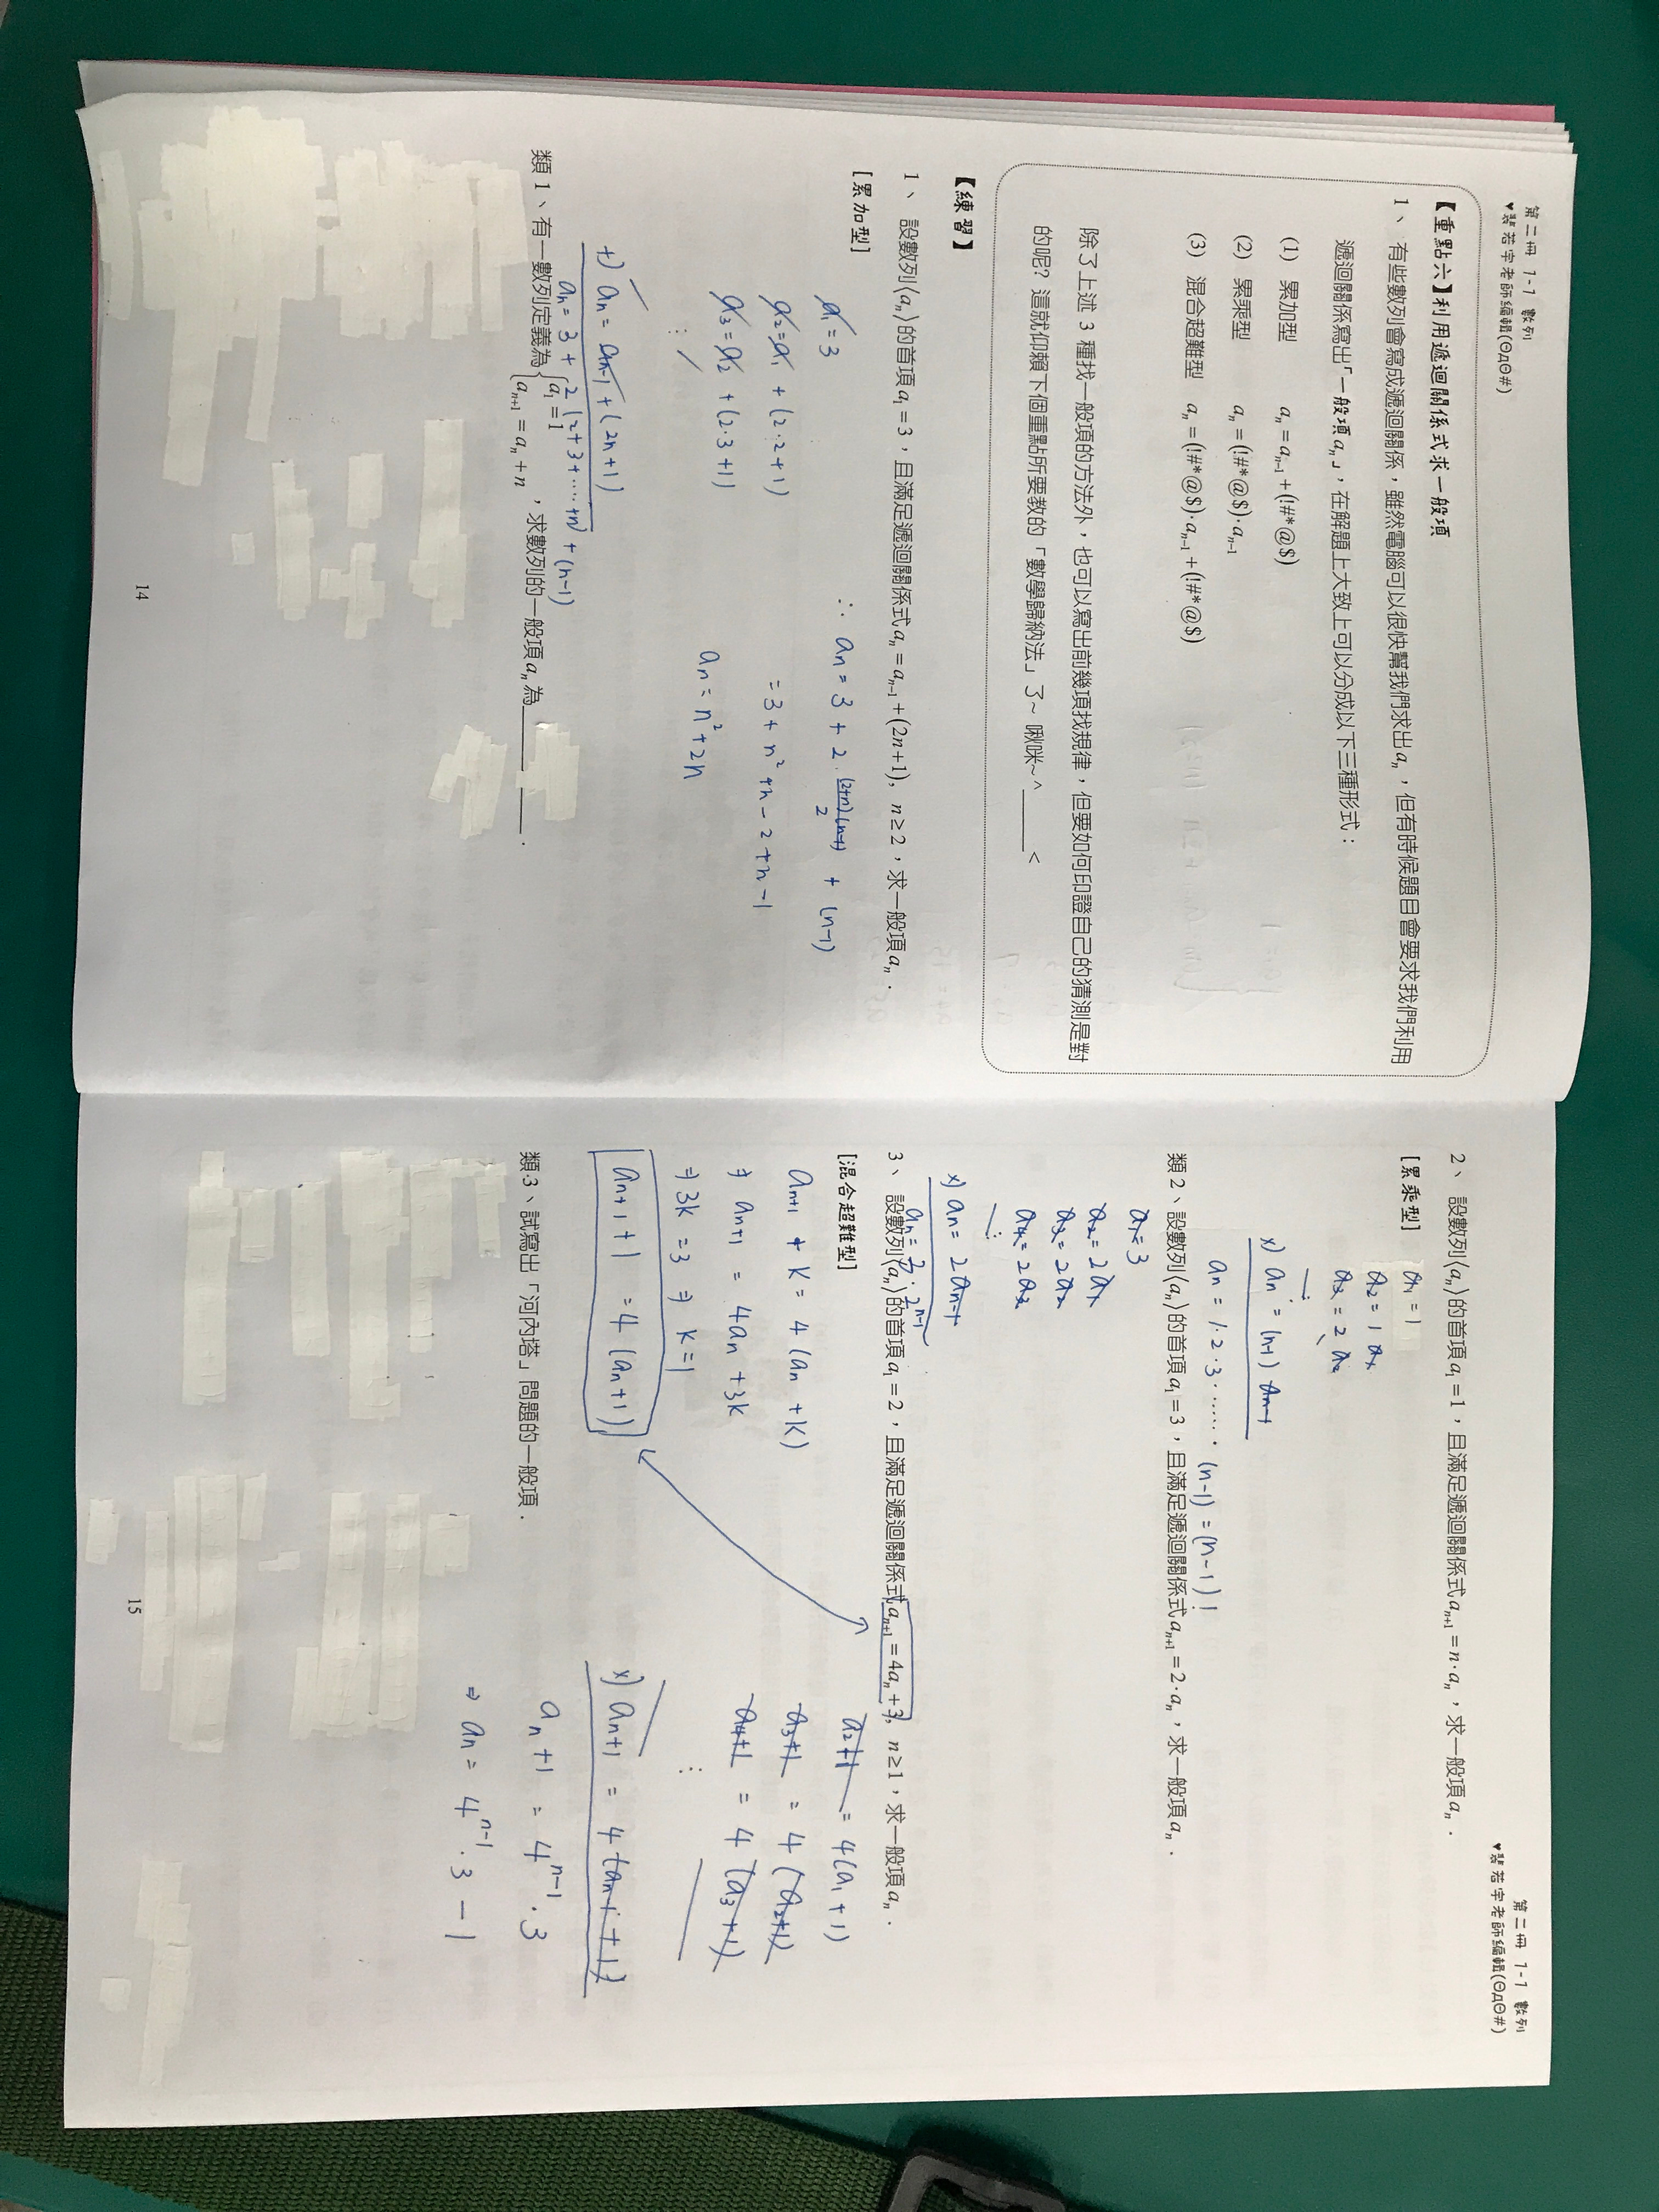 第二冊 1-1 數列
♥裴若宇老師編輯(ΘдΘ#)
【重點六】利用遞迴關係式求一般項
1、 有些數列會寫成遞迴關係，雖然電腦可以很快幫我們求出aₙ，但有時候題目會要求我們利用
遞迴關係寫出「一般項aₙ」，在解題上大致上可以分成以下三種形式：
(1) 累加型 aₙ = aₙ₋₁ + (!#*@$)
(2) 累乘型 aₙ = (!#*@$)·aₙ₋₁
(3) 混合超難型 aₙ = (!#*@$)·aₙ₋₁ + (!#*@$)
除了上述 3 種找一般項的方法外，也可以寫出前幾項找規律，但要如何印證自己的猜測是對
的呢? 這就仰賴下個重點所要教的「數學歸納法」了~ 啾咪~^_____<
【練習】
1、 設數列⟨aₙ⟩的首項 a₁ = 3，且滿足遞迴關係式 aₙ = aₙ₋₁ + (2n+1), n ≥ 2，求一般項 aₙ．
[累加型]
a₁ = 3
a₂ = a₁ + (2·2+1)
a₃ = a₂ + (2·3+1)
⋮
+) aₙ = aₙ₋₁ + (2n+1)
aₙ = 3 + 2(2+3+……+n) + (n-1)
∴ aₙ = 3 + 2·(2+n)(n-1)/2 + (n-1)
= 3 + n² + n - 2 + n - 1
aₙ = n² + 2n
類 1、有一數列定義為 { a₁ = 1
aₙ₊₁ = aₙ + n ，求數列的一般項 aₙ 為__________．
14
第二冊 1-1 數列
♥裴若宇老師編輯(ΘдΘ#)
2、 設數列⟨aₙ⟩的首項 a₁ = 1，且滿足遞迴關係式 aₙ₊₁ = n·aₙ，求一般項 aₙ．
[累乘型]
a₁ = 1
a₂ = 1 a₁
a₃ = 2 a₂
⋮
×) aₙ = (n-1) aₙ₋₁
aₙ = 1·2·3·……·(n-1) = (n-1)!
類 2、設數列⟨aₙ⟩的首項 a₁ = 3，且滿足遞迴關係式 aₙ₊₁ = 2·aₙ，求一般項 aₙ．
a₁ = 3
a₂ = 2a₁
a₃ = 2a₂
a₄ = 2a₃
⋮
×) aₙ = 2aₙ₋₁
aₙ = 3·2ⁿ⁻¹
3、 設數列⟨aₙ⟩的首項 a₁ = 2，且滿足遞迴關係式 aₙ₊₁ = 4aₙ + 3, n ≥ 1，求一般項 aₙ．
[混合超難型]
aₙ₊₁ + k = 4(aₙ + k)
⇒ aₙ₊₁ = 4aₙ + 3k
⇒ 3k = 3 ⇒ k = 1
aₙ₊₁ + 1 = 4(aₙ + 1)
a₂+1 = 4(a₁+1)
a₃+1 = 4(a₂+1)
a₄+1 = 4(a₃+1)
⋮
×) aₙ+1 = 4(aₙ₋₁+1)
aₙ + 1 = 4ⁿ⁻¹·3
⇒ aₙ = 4ⁿ⁻¹·3 - 1
類 3、試寫出「河內塔」問題的一般項．
15